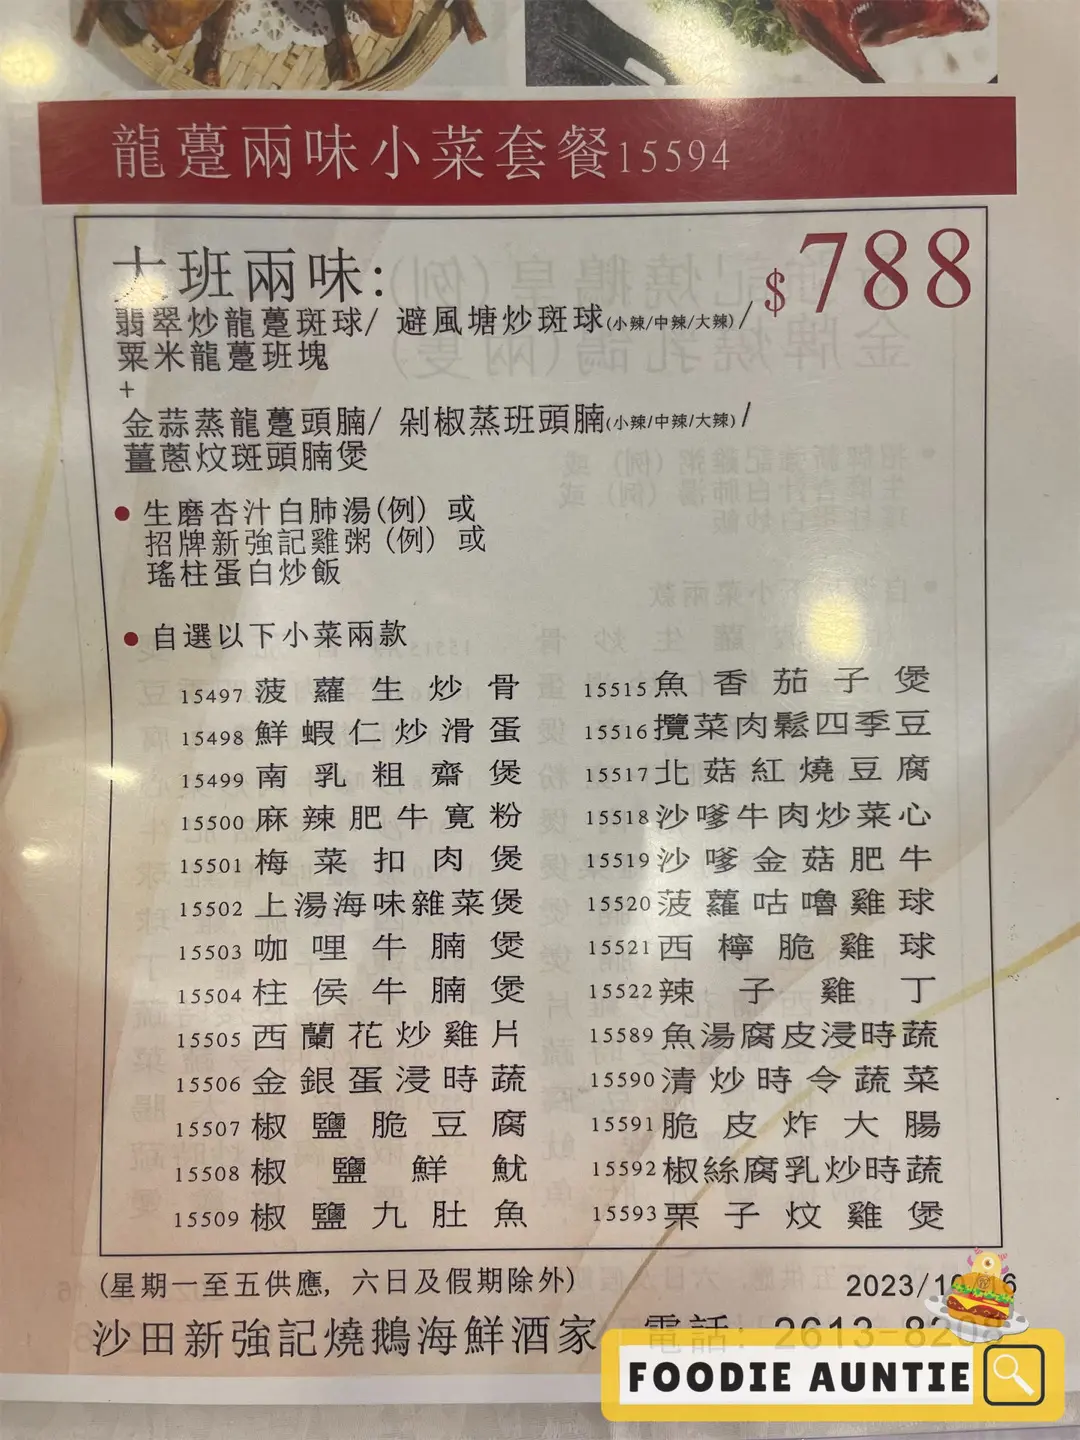 龍躉兩味小菜套餐15594
大班兩味:
$788
翡翠炒龍躉斑球/ 避風塘炒斑球(小辣/中辣/大辣)/
粟米龍躉班塊
+
金蒜蒸龍躉頭腩/ 剁椒蒸班頭腩(小辣/中辣/大辣)/
薑蔥炆斑頭腩煲
● 生磨杏汁白肺湯(例) 或
招牌新強記雞粥 (例) 或
瑤柱蛋白炒飯
● 自選以下小菜兩款
15497 菠蘿生炒骨
15498 鮮蝦仁炒滑蛋
15499 南乳粗齋煲
15500 麻辣肥牛寬粉
15501 梅菜扣肉煲
15502 上湯海味雜菜煲
15503 咖哩牛腩煲
15504 柱侯牛腩煲
15505 西蘭花炒雞片
15506 金銀蛋浸時蔬
15507 椒鹽脆豆腐
15508 椒鹽鮮魷
15509 椒鹽九肚魚
15515 魚香茄子煲
15516 攬菜肉鬆四季豆
15517 北菇紅燒豆腐
15518 沙嗲牛肉炒菜心
15519 沙嗲金菇肥牛
15520 菠蘿咕嚕雞球
15521 西檸脆雞球
15522 辣子雞丁
15589 魚湯腐皮浸時蔬
15590 清炒時令蔬菜
15591 脆皮炸大腸
15592 椒絲腐乳炒時蔬
15593 栗子炆雞煲
(星期一至五供應, 六日及假期除外)
2023/10
沙田新強記燒鵝海鮮酒家 電話: 2613-8208
FOODIE AUNTIE